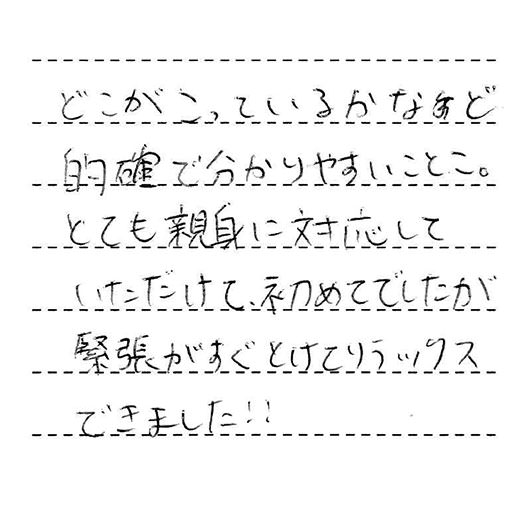 どこがこっているかなど
的確で分かりやすいことこ。
とても親身に対応して
いただけて、初めてでしたが
緊張がすぐとけてリラックス
できました!!